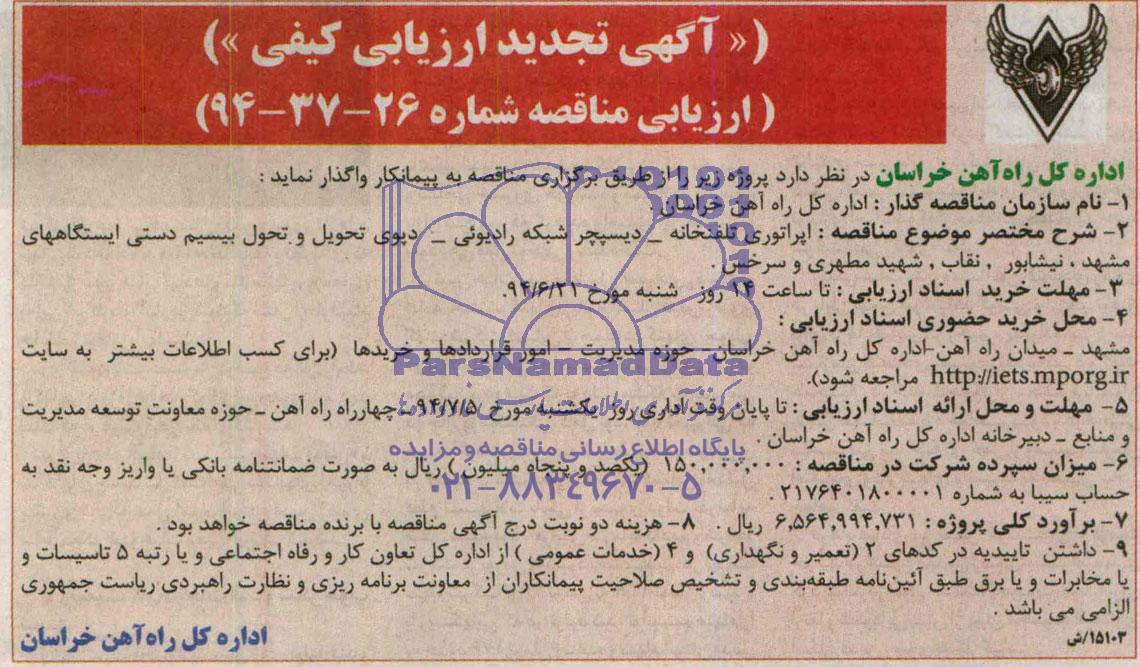 (« آگهی تجدید ارزیابی کیفی »)
( ارزیابی مناقصه شماره ۲۶-۳۷-۹۴)
اداره کل راه آهن خراسان در نظر دارد پروژه زیر را از طریق برگزاری مناقصه به پیمانکار واگذار نماید :
۱- نام سازمان مناقصه گذار : اداره کل راه آهن خراسان .
۲- شرح مختصر موضوع مناقصه : اپراتوری تلفنخانه _ دیسپچر شبکه رادیوئی _ دپوی تحویل و تحول بیسیم دستی ایستگاههای
مشهد ، نیشابور , نقاب , شهید مطهری و سرخس .
۳- مهلت خرید اسناد ارزیابی : تا ساعت ۱۴ روز شنبه مورخ ۹۴/۶/۲۱.
۴- محل خرید حضوری اسناد ارزیابی :
مشهد _ میدان راه آهن-اداره کل راه آهن خراسان_ حوزه مدیریت – امور قراردادها و خریدها (برای کسب اطلاعات بیشتر به سایت
http://iets.mporg.ir مراجعه شود).
ParsNamadData
۵- مهلت و محل ارائه اسناد ارزیابی : تا پایان وقت اداری روز یکشنبه مورخ ۹۴/۷/۵ _ چهارراه راه آهن _ حوزه معاونت توسعه مدیریت
و منابع _ دبیرخانه اداره کل راه آهن خراسان .
پایگاه اطلاع رسانی مناقصه و مزایده
۶- میزان سپرده شرکت در مناقصه : ۱۵۰,۰۰۰,۰۰۰ (یکصد و پنجاه میلیون ) ریال به صورت ضمانتنامه بانکی یا واریز وجه نقد به
حساب سیبا به شماره ۲۱۷۶۴۰۱۸۰۰۰۰۱ .
۰۲۱-۸۸۳۴۹۶۷۰-۵
۷- برآورد کلی پروژه : ۶,۵۶۴,۹۹۴,۷۳۱ ریال . ۸- هزینه دو نوبت درج آگهی مناقصه با برنده مناقصه خواهد بود .
۹- داشتن تاییدیه در کدهای ۲ (تعمیر و نگهداری) و ۴ (خدمات عمومی ) از اداره کل تعاون کار و رفاه اجتماعی و یا رتبه ۵ تاسیسات و
یا مخابرات و یا برق طبق آئین‌نامه طبقه‌بندی و تشخیص صلاحیت پیمانکاران از معاونت برنامه ریزی و نظارت راهبردی ریاست جمهوری
الزامی می باشد .
۱۵۱۰۳/ش
اداره کل راه‌آهن خراسان